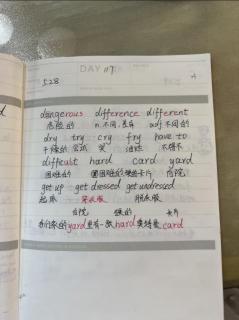 DAY 117
528
dangerous difference different
危险的 n.不同,差异 adj.不同的
dry try cry fry have to
干燥的 尝试 哭 油炸 不得不
difficult hard card yard
困难的 困难的 硬的 卡片 庭院
get up get dressed get undressed
起床 穿衣服 脱衣服
庭院 硬的 卡片
我们家的yard里有一张hard奥特曼card